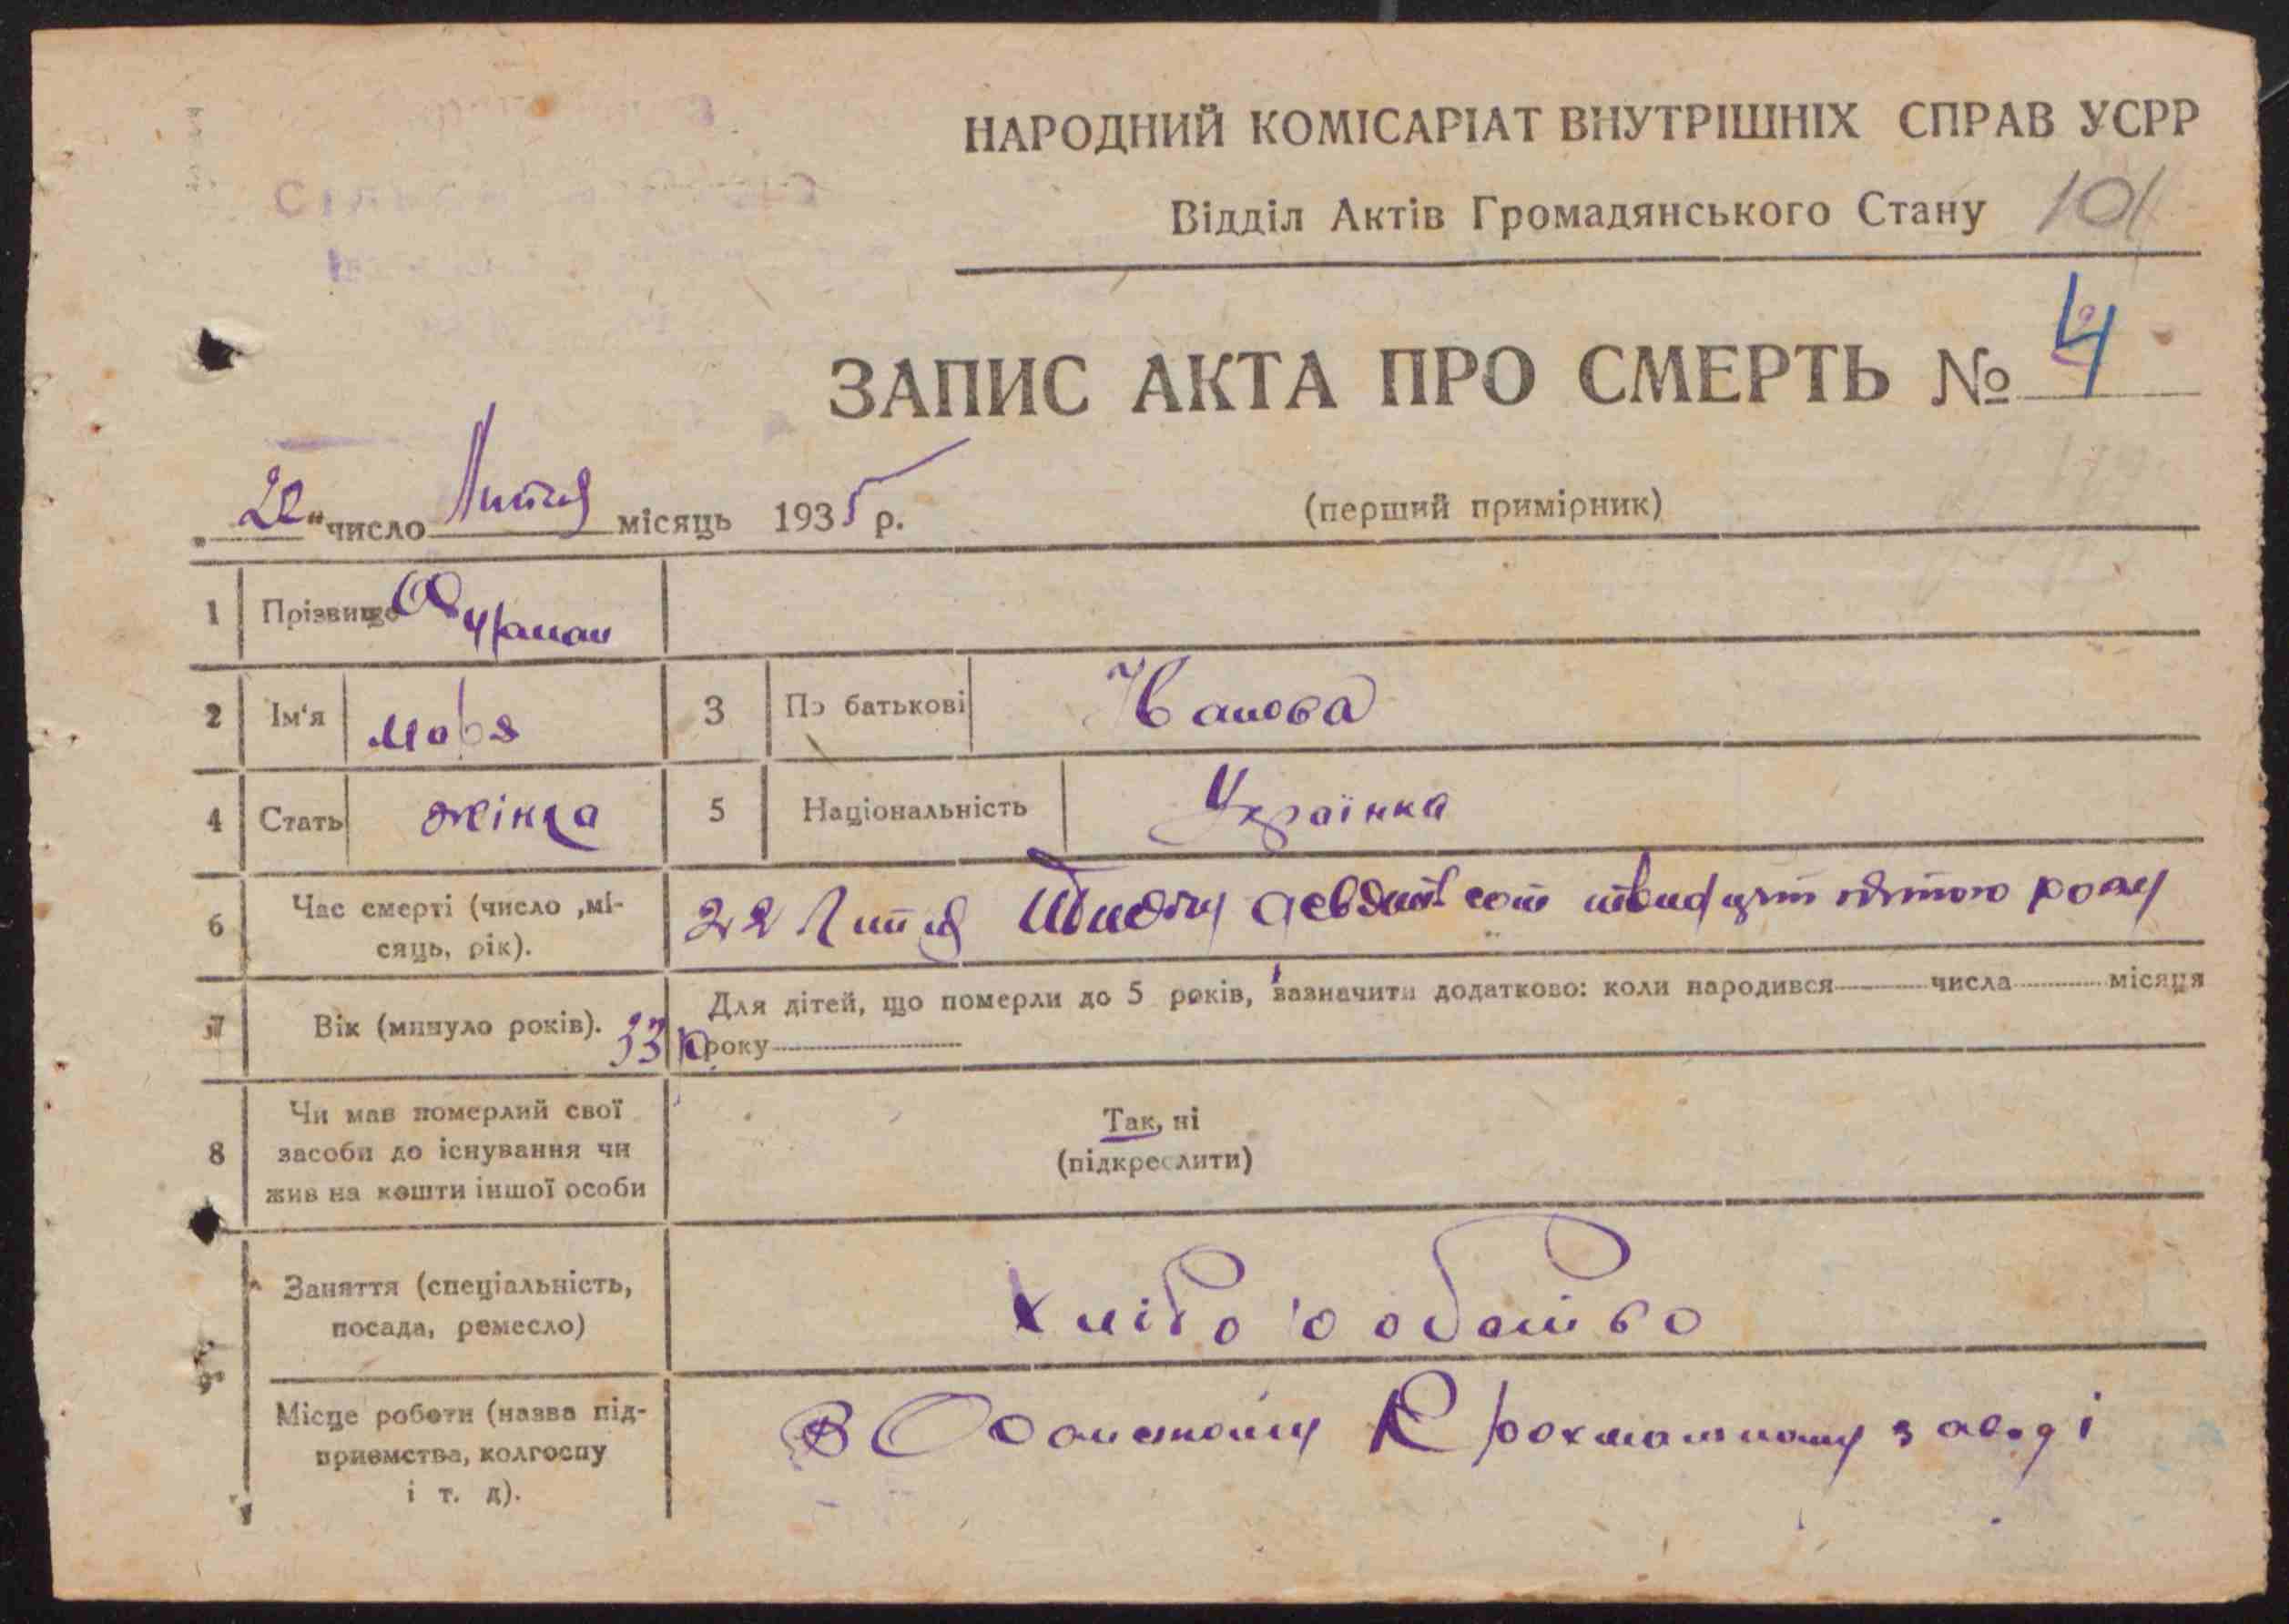 НАРОДНИЙ КОМІСАРІАТ ВНУТРІШНІХ СПРАВ УСРР
Відділ Актів Громадянського Стану 101
ЗАПИС АКТА ПРО СМЕРТЬ № 4
"22" число місяць 1935 р. (перший примірник)
1 Прізвище
2 Ім'я 3 По батькові Іванова
4 Стать жінка 5 Національність Українка
6 Час смерті (число ,мі-
сяць, рік).
22 року
7 Вік (минуло років). 33 Для дітей, що померли до 5 років, зазначити додатково: коли народився числа місяця
року
8 Чи мав померлий свої
засоби до існування чи
жив на кошти іншої особи
Так, ні
(підкреслити)
9 Заняття (спеціальність,
посада, ремесло)
Хліборобство
Місце роботи (назва під-
приємства, колгоспу
і т. д).
В Крохмальному заводі